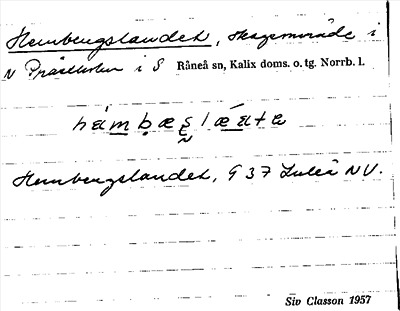 Hembergslandet, skogsområde i
N Prästholm i S Råneå sn, Kalix doms. o. tg. Norrb. l.
Hembergslandet, G 37 Luleå NV.
Siv Classon 1957